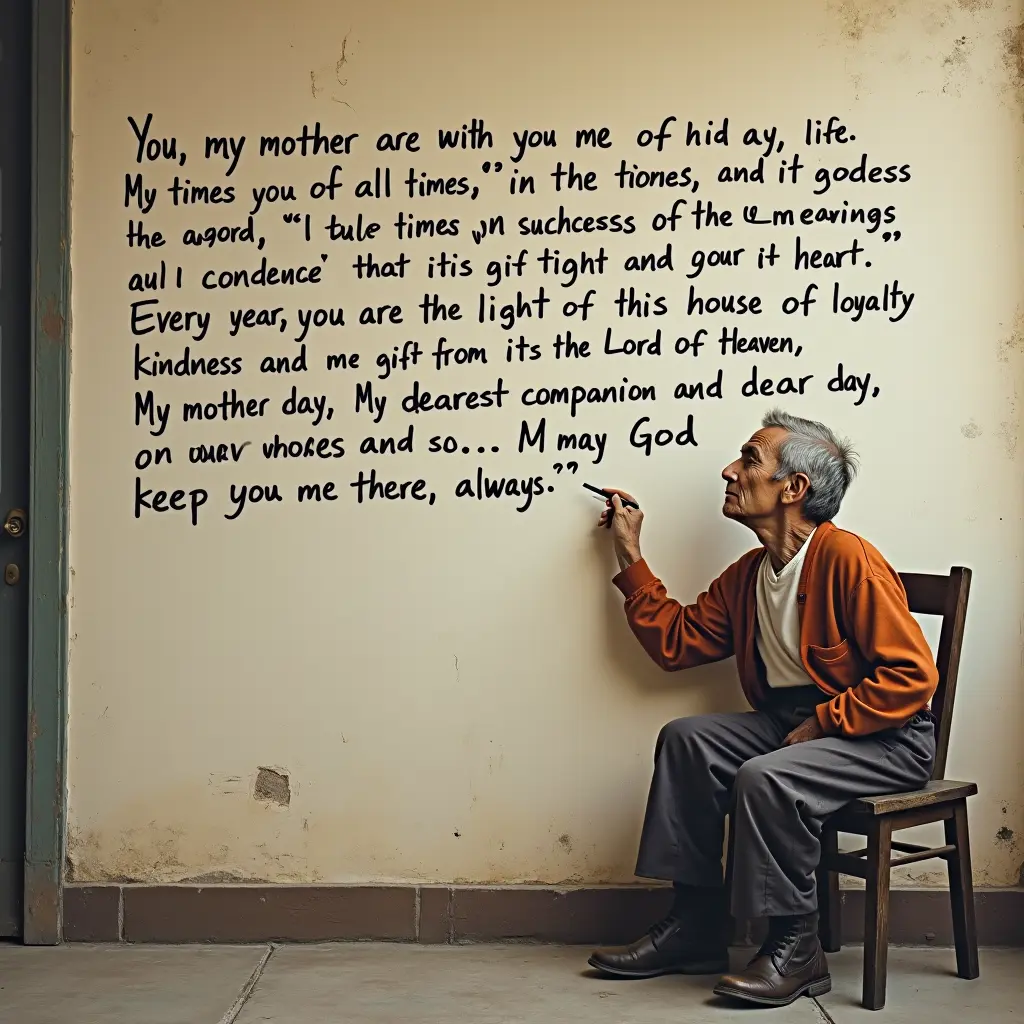 You, my mother are with you me of hid ay, life.
My times you of all times,” in the tiones, and it godess
the agord, “I tule times in suchcesss of the meavings
aul I condence' that itis gif tight and gour it heart.”
Every year, you are the light of this house of loyalty
kindness and me gift from its the Lord of Heaven,
My mother day, My dearest companion and dear day,
on vhoses and so... M may God
keep you me there, always.”